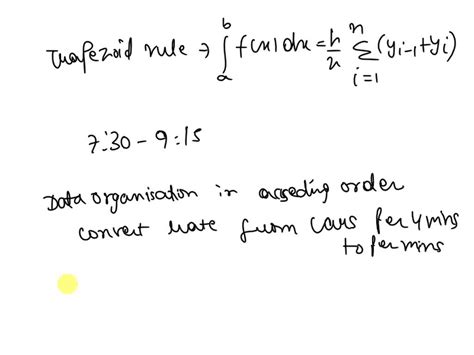 Trapezoid rule → ∫_a^b f(x) dx = h/2 ∑_{i=1}^{n} (y_{i-1} + y_i)
7:30 - 9:15
Data organisation in asceding order
convert rate from cars per 4 mns
to per mns